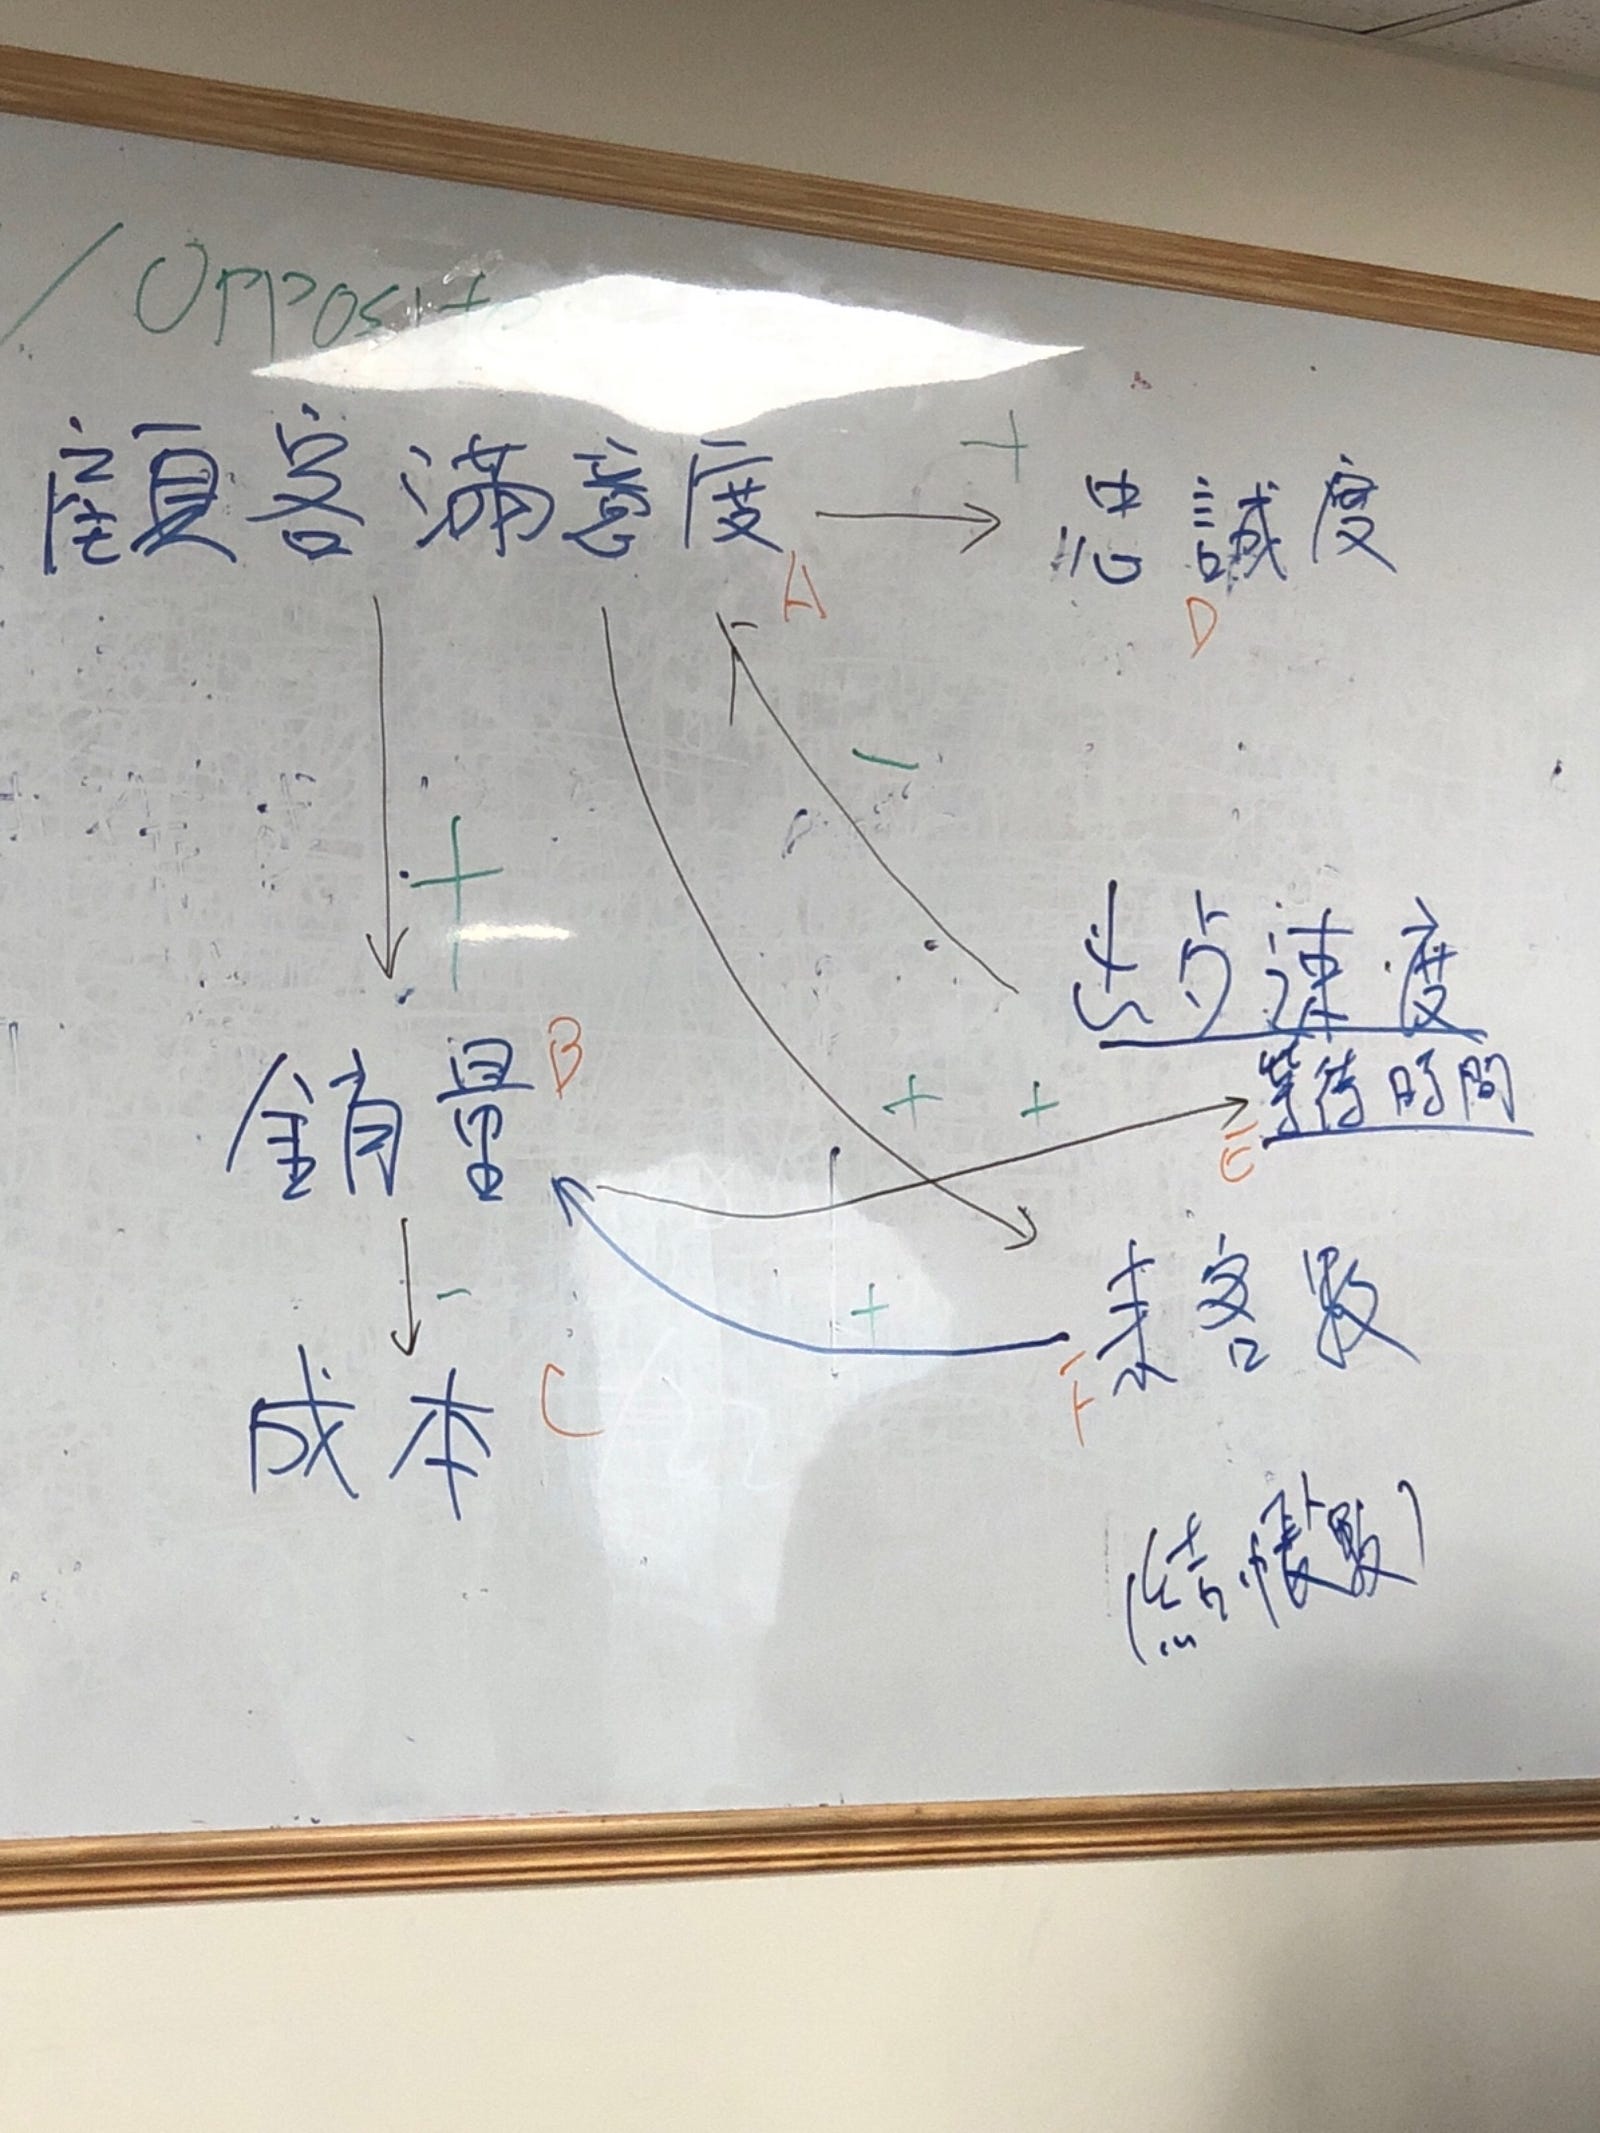 / Opposite
顧客滿意度 A
+
忠誠度 D
-
+
出步速度
等待時間 E
銷量 B
+ +
-
+
來客数 F
成本 C
(結帳數)